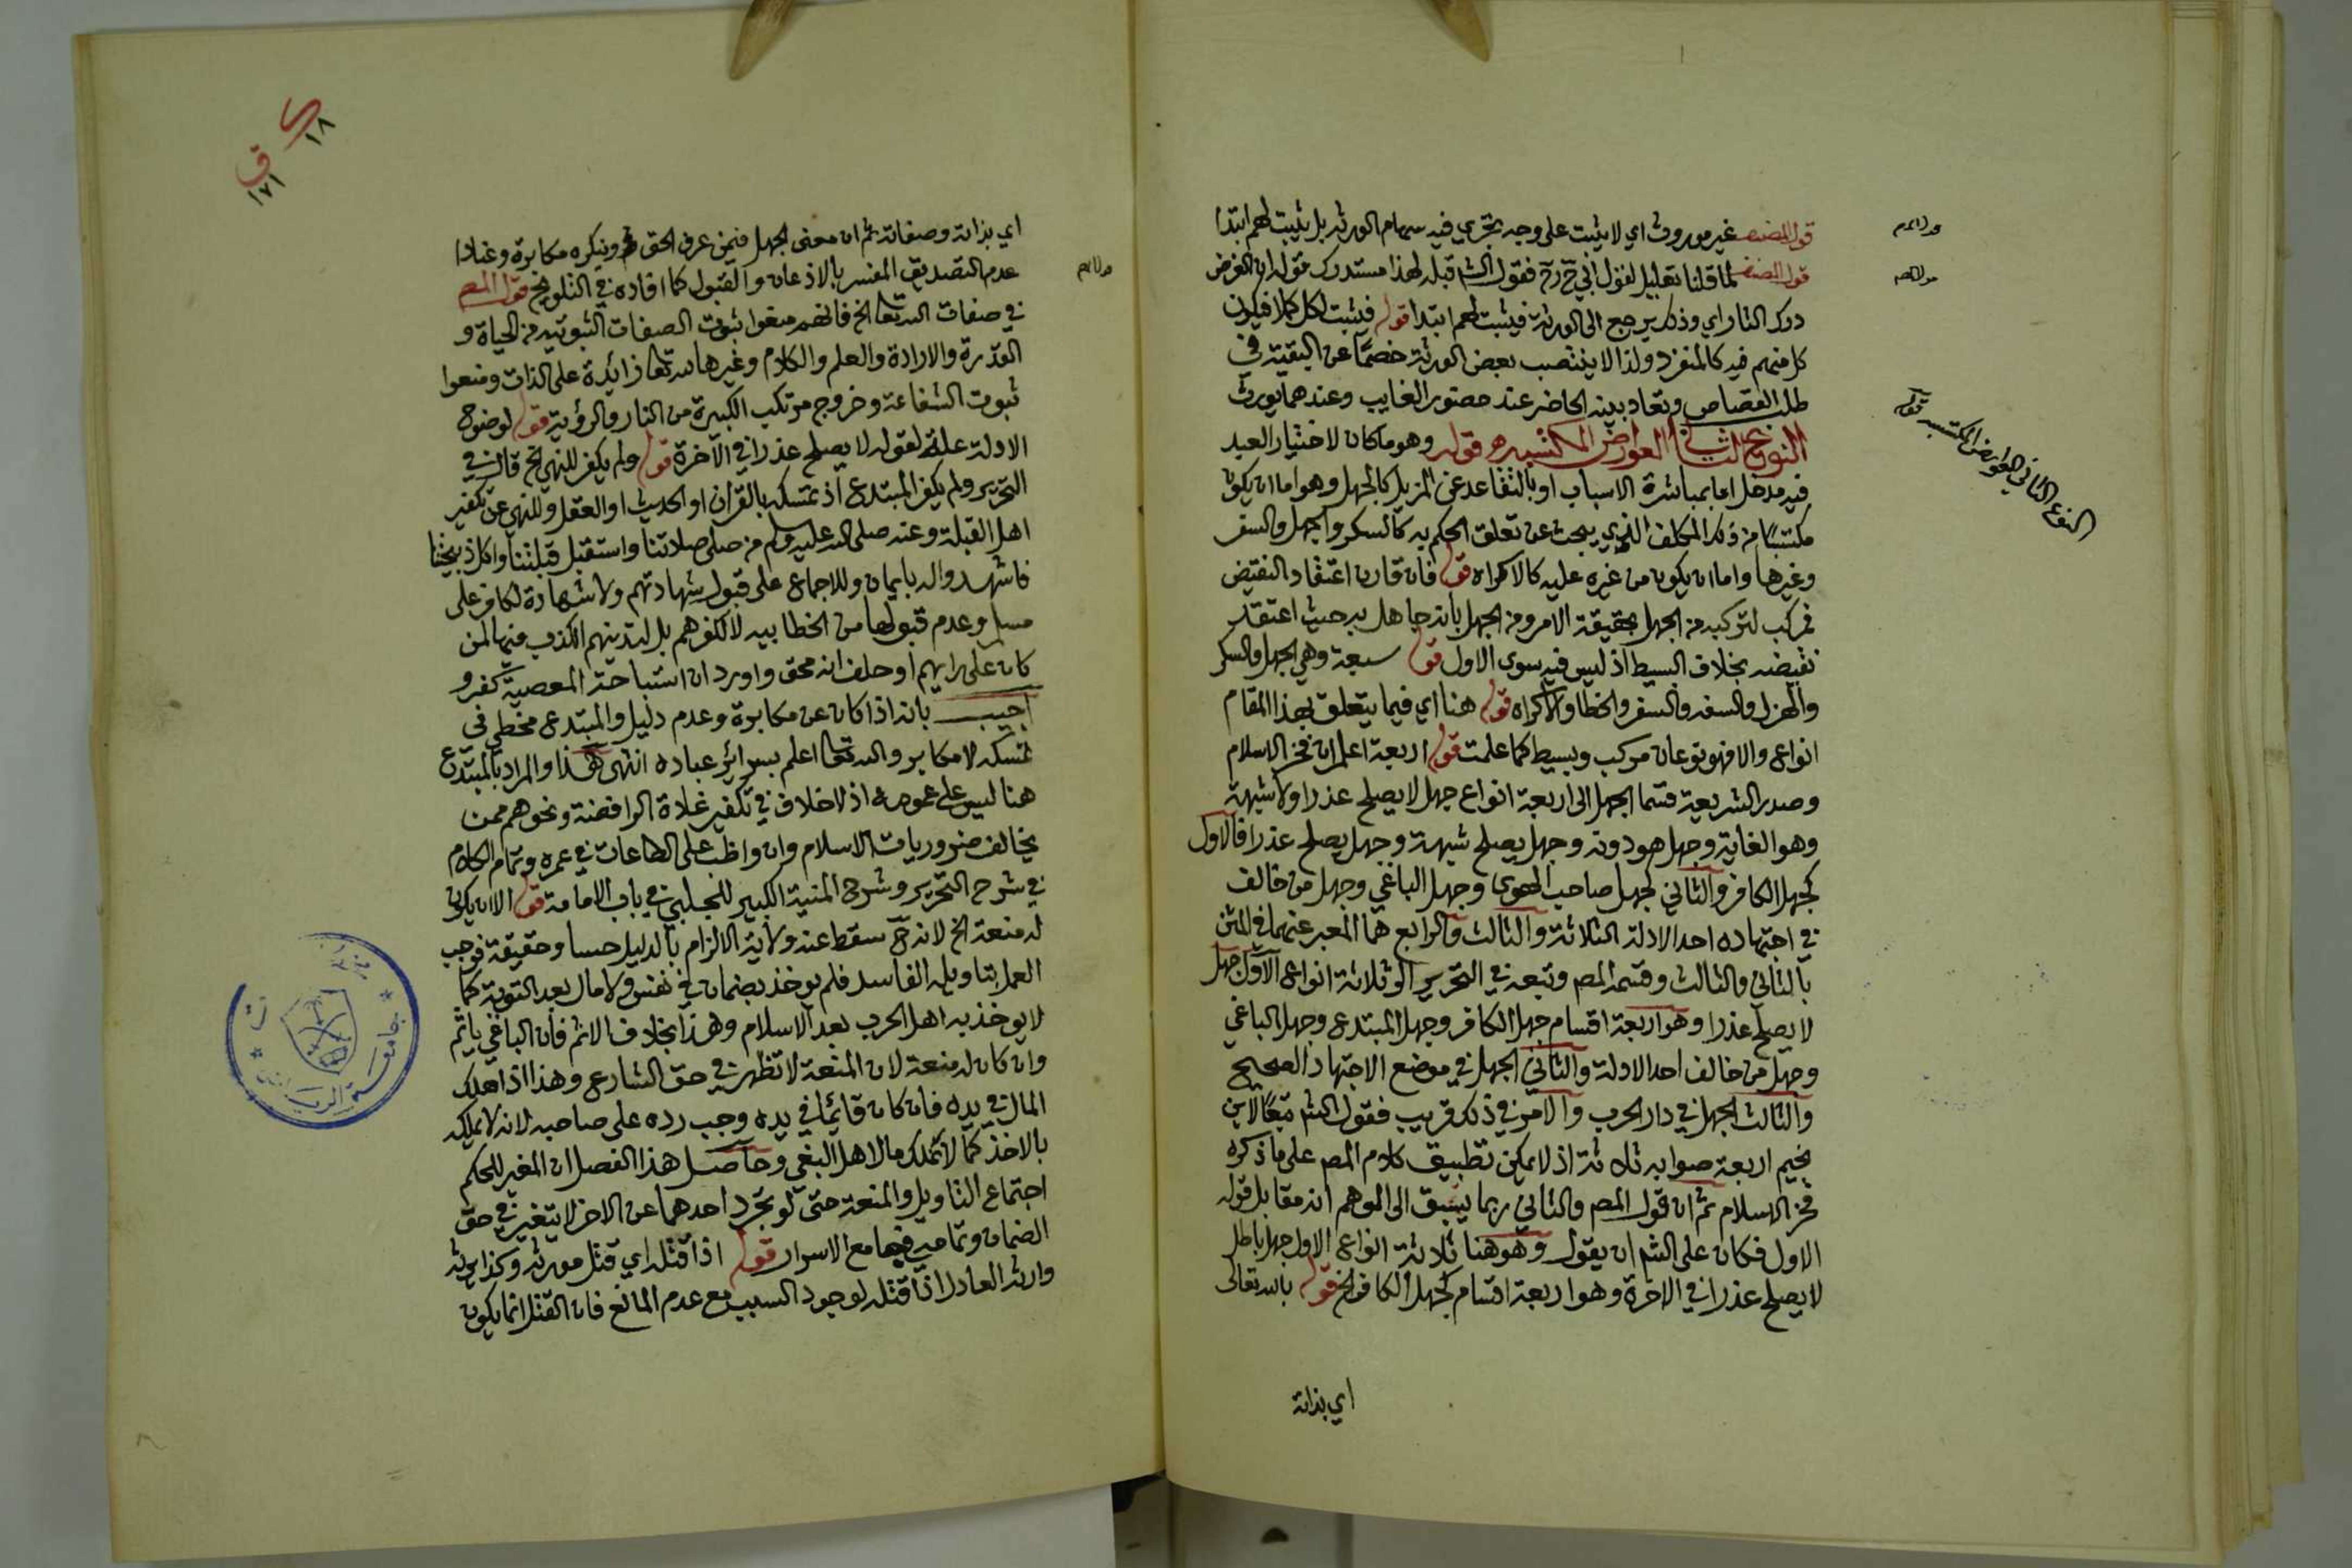 قول المصنف غير موروث اي لا يثبت على وجه يجري فيه سهام الورثة بل يثبت لهم ابتدا
قول المصنف لما قلنا تعليل لقول ابي ح رح فقول الش قبله لهذا مستدرك قوله ان الغرض
درك الثار اي وذلك يرجع الى الورثة فيثبت لهم ابتدا قوله فيثبت لكل كملا فيكون
كل منهم فيه كالمنفرد ولذا لا ينتصب بعض الورثة خصما عن البقية في
طلب القصاص وتعاد بينه الحاضر عند حضور الغايب وعندهما يورث
النوع الثاني العوارض المكتسبة قوله وهو ما كان لاختيار العبد
فيه مدخل اما بمباشرة الاسباب او بالتقاعد عن المزيل كالجهل وهو اما ان يكون
مكتسبا من ذلك المكلف الذي يبحث عن تعلق الحكم به كالسكر والجهل والسفر
وغيرها واما ان يكون من غيره عليه كالاكراه قوله فان قارن اعتقاد النقيض
فمركب لتركبه من الجهل بحقيقة الامر ومن الجهل بانه جاهل به حيث اعتقد
نقيضه بخلاف البسيط اذ ليس فيه سوى الاول قوله سبعة وهي الجهل والسكر
والهزل والسفه والسفر والخطا والاكراه قوله هنا اي فيما يتعلق بهذا المقام
انواع والا فهو نوعان مركب وبسيط كما علمت قوله اربعة اعلم ان فخر الاسلام
وصدر الشريعة قسما الجهل الى اربعة انواع جهل لا يصلح عذرا ولا شبهة
وهو الغاية وجهل هو دونه وجهل يصلح شبهة وجهل يصلح عذرا فالاول
كجهل الكافر والثاني كجهل صاحب الهوى وجهل الباغي وجهل من خالف
في اجتهاده احد الادلة الثلاثة والثالث والرابع هما المعبر عنهما في المتن
بالثاني والثالث وقسمه المص وتبعه في التحرير الى ثلاثة انواع الاول جهل
لا يصلح عذرا وهو اربعة اقسام جهل الكافر وجهل المبتدع وجهل الباغي
وجهل من خالف احد الادلة والثاني الجهل في موضع الاجتهاد الصحيح
والثالث الجهل في دار الحرب والامر في ذلك قريب فقول الش تبعا لابن
نجيم اربعة صوابه ثلاثة اذ لا يمكن تطبيق كلام المص على ما ذكره
فخر الاسلام ثم ان قول المص والثاني ربما يسبق الى الوهم انه مقابل قوله
الاول فكان على الش ان يقول وهو هنا ثلاثة انواع الاول جهل باطل
لا يصلح عذرا في الاخرة وهو اربعة اقسام كجهل الكافر الخ قوله بالله تعالى
اي بذاته
النوع الثاني العوارض المكتسبة
١٨
ق
١٧١
اي بذاته وصفاته ثم ان معنى الجهل فيمن عرف الحق وينكره مكابرة وعنادا
عدم التصديق المفسر بالاذعان والقبول كما افاده في التلويح قول المص
في صفات الله تعا الخ فانهم منعوا ثبوت الصفات الثبوتية من الحياة و
القدرة والارادة والعلم والكلام وغيرها لله تعا زائدة على الذات ومنعوا
ثبوت الشفاعة وخروج مرتكب الكبيرة من النار والرؤية قوله لوضوح
الادلة علة لقوله لا يصلح عذرا في الآخرة قوله ولم يكفر للنهي الخ قال في
التحرير ولم يكفر المبتدع اذ تمسكه بالقران او الحديث او العقل وللنهي عن تكفير
اهل القبلة وعنه صلى الله عليه وسلم من صلى صلاتنا واستقبل قبلتنا واكل ذبيحتنا
فاشهدوا له بايمان وللاجماع على قبول شهادتهم ولا شهادة لكافر على
مسلم وعدم قبولها من الخطابيه لا لكفرهم بل لتدينهم الكذب فيها لمن
كان على رايهم او حلف انه محق واورد ان استباحة المعصية كفر و
اجيب بانه اذا كان عن مكابرة وعدم دليل والمبتدع مخطي في
تمسكه لا مكابر والله تعا اعلم بسرائر عباده انتهى هذا والمراد بالمبتدع
هنا ليس على عمومه اذ لا خلاف في تكفير غلاة الرافضة ونحوهم ممن
يخالف ضروريات الاسلام وان واظب على الطاعات في عمره وتمام الكلام
في شرح التحرير وشرح المنية الكبير للحلبي في باب الامامة قوله الا ان يكون
له منعة الخ لانه ح سقط عنه ولاية الالزام بالدليل حسا وحقيقة فوجب
العمل بتاويله الفاسد فلم يوخذ بضمان في نفس ولا مال بعد التوبة كما
لا يوخذ به اهل الحرب بعد الاسلام وهذا بخلاف الاثم فان الباغي ياثم
وان كان له منعة لان المنعة لا تظهر في حق الشارع وهذا اذا هلك
المال في يده فان كان قائما في يده وجب رده على صاحبه لانه لا يملكه
بالاخذ كما لا تملك مال اهل البغي وحاصل هذا الفصل ان المغير للحكم
اجتماع التاويل والمنعة حتى لو تجرد احدهما عن الاخر لا يتغير في حق
الضمان وتمامه في جامع الاسرار قوله اذا قتله اي قتل مورثه وكذا يرثه
وارثه العادل اذا قتله لوجود السبب مع عدم المانع فان القتل انما يكون